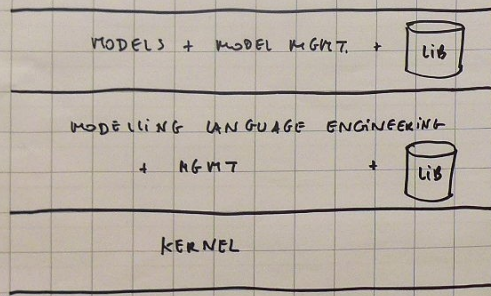 MODELS + MODEL MGMT. + LIB
MODELLING LANGUAGE ENGINEERING
+ MGMT + LIB
KERNEL